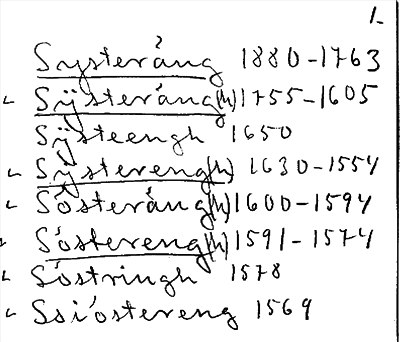 1.
Systeräng 1880-1763
Sÿsteräng(h) 1755-1605
Sÿsteengh 1650
Sÿstereng(h) 1630-1554
Sösteräng(h) 1600-1594
Söstereng(h) 1591-1574
Söstringh 1578
Ssiöstereng 1569